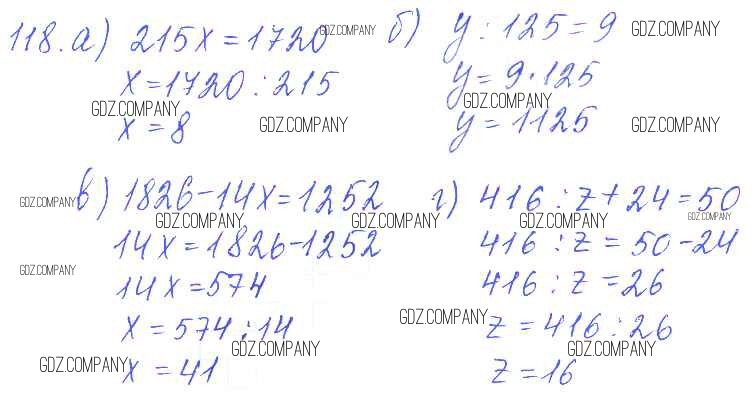 118. а) 215x = 1720 GDZ.COMPANY б) y : 125 = 9 GDZ.COMPANY
x = 1720 : 215 y = 9 · 125
GDZ.COMPANY GDZ.COMPANY
x = 8 GDZ.COMPANY y = 1125 GDZ.COMPANY
GDZ.COMPANY в) 1826 - 14x = 1252 г) 416 : z + 24 = 50
GDZ.COMPANY GDZ.COMPANY GDZ.COMPANY GDZ.COMPANY
14x = 1826 - 1252 416 : z = 50 - 24
GDZ.COMPANY
14x = 574 416 : z = 26
x = 574 : 14 GDZ.COMPANY z = 416 : 26
GDZ.COMPANY GDZ.COMPANY
GDZ.COMPANY x = 41 z = 16